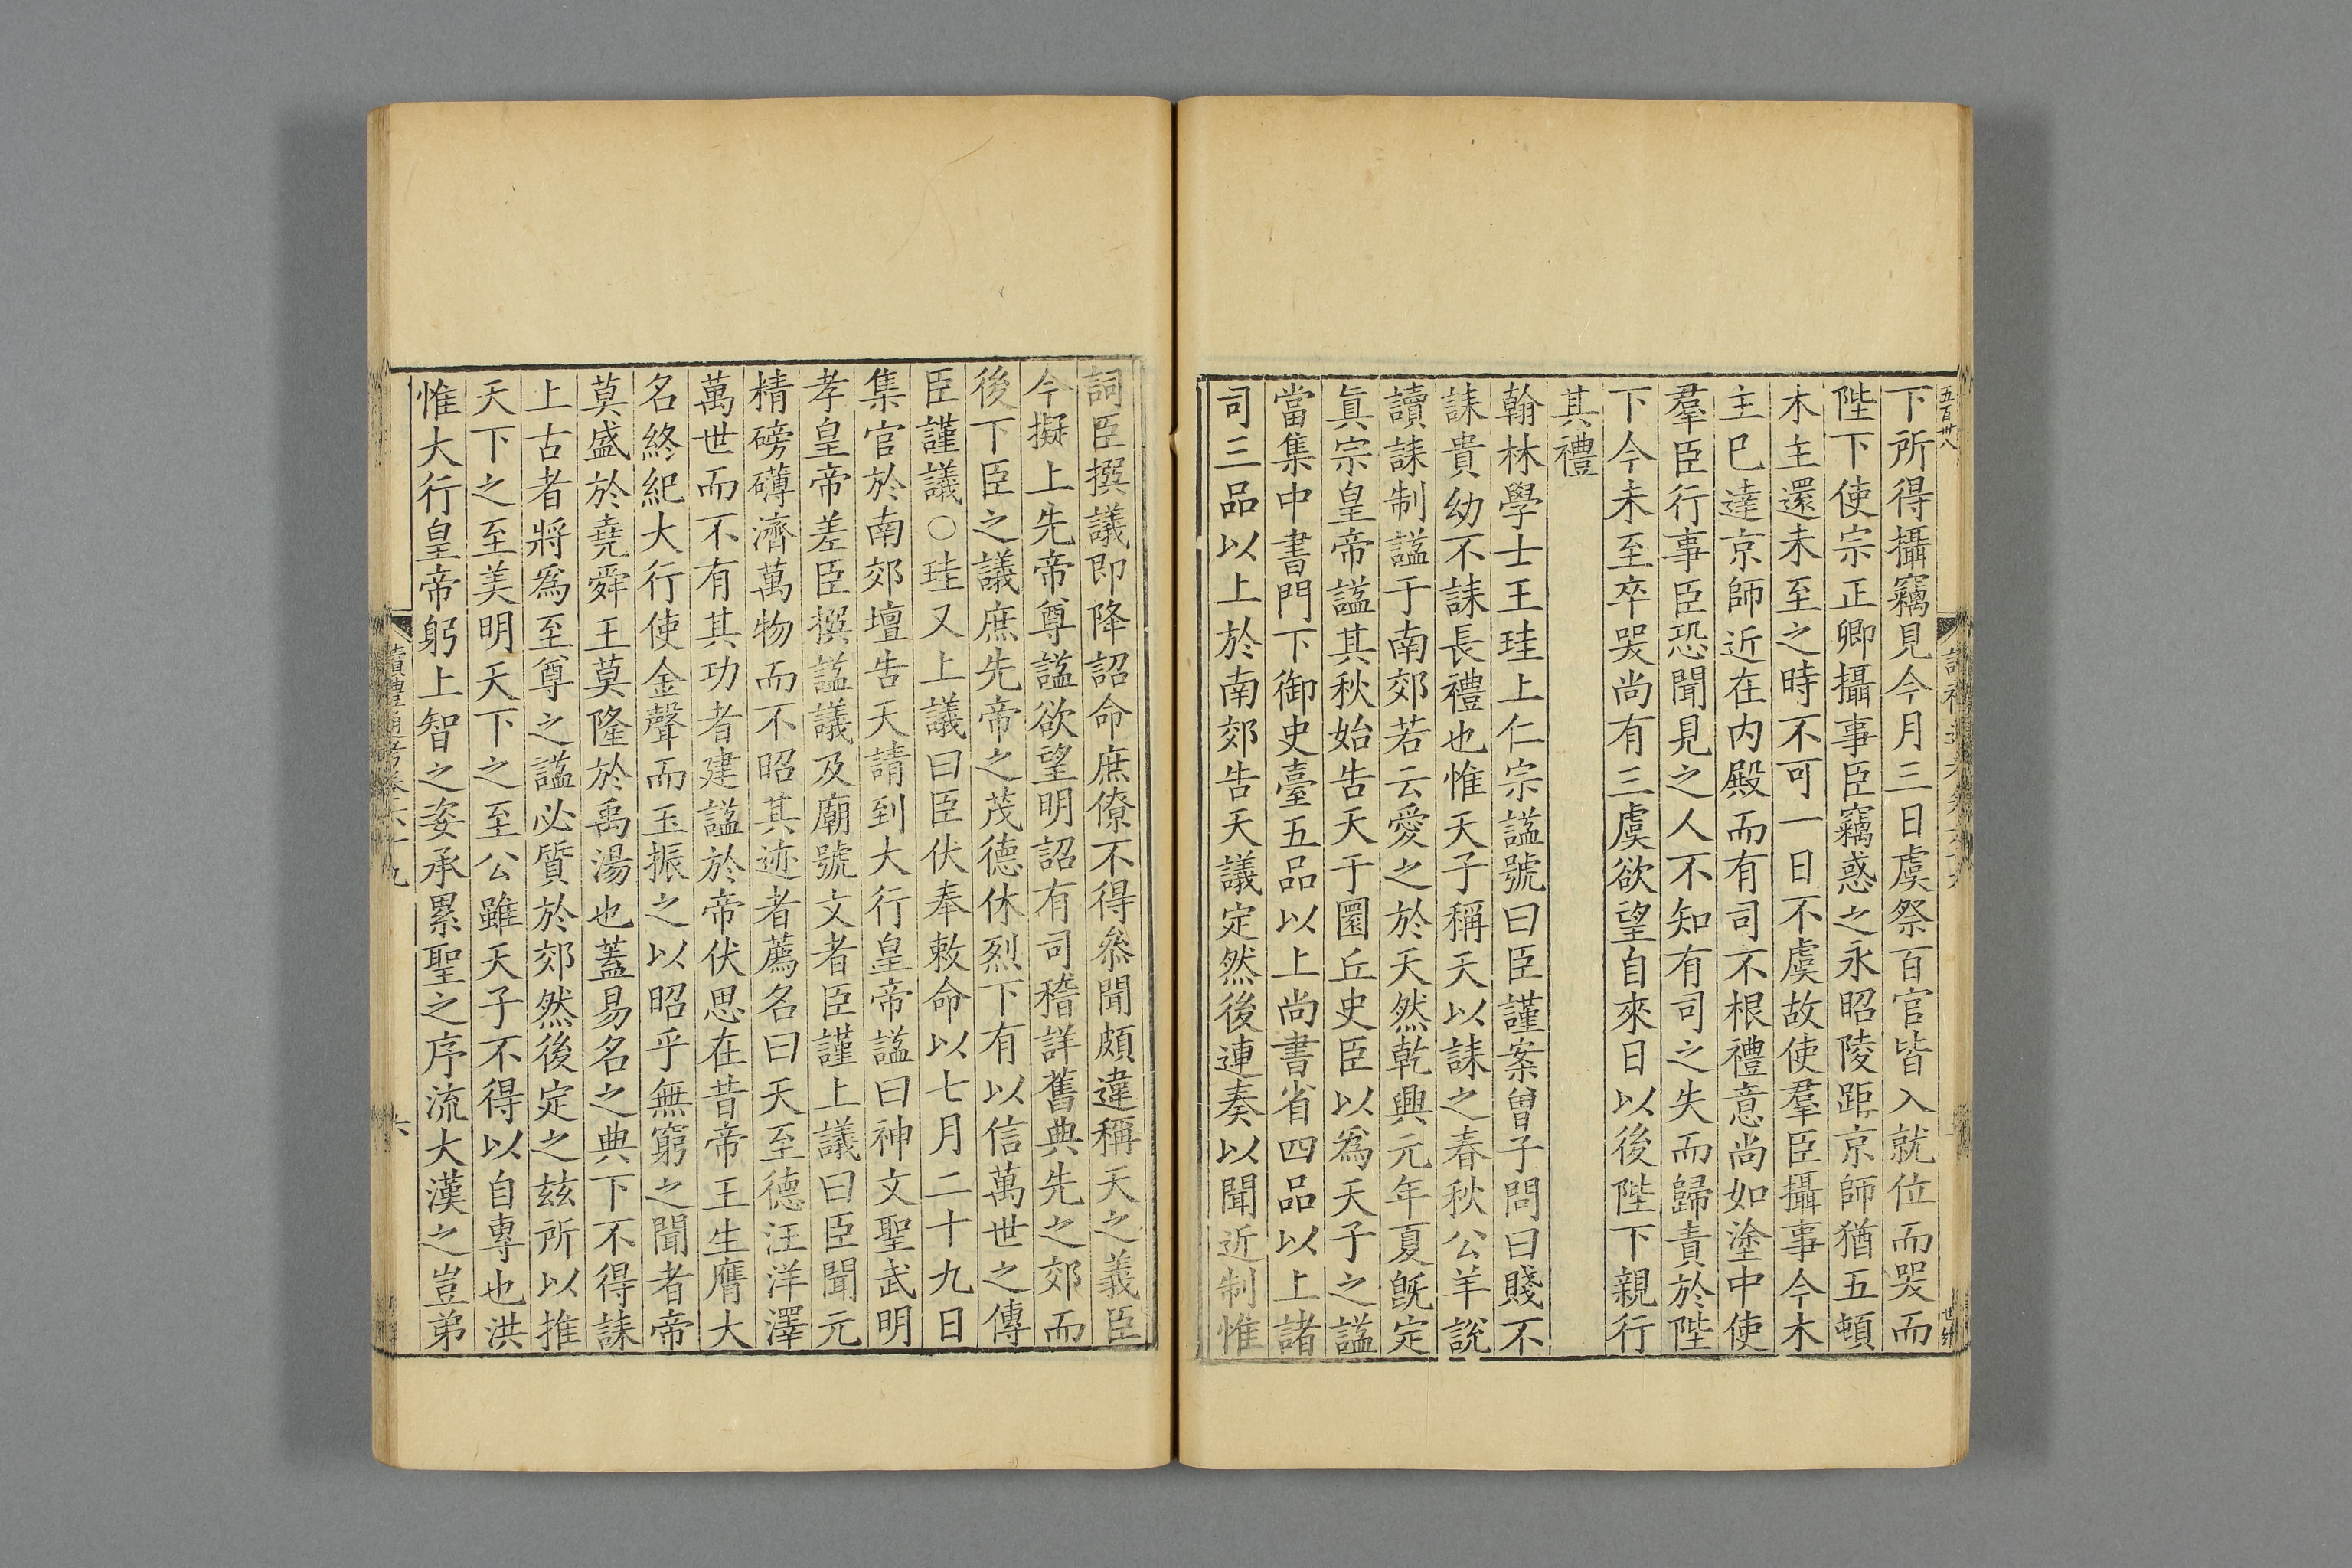 五百卅八
下所得攝竊見今月三日虞祭百官皆入就位而哭而
陛下使宗正卿攝事臣竊惑之永昭陵距京師猶五頓
木主還未至之時不可一日不虞故使羣臣攝事今木
主已達京師近在内殿而有司不根禮意尚如塗中使
羣臣行事臣恐聞見之人不知有司之失而歸責於陛
下今未至卒哭尚有三虞欲望自來日以後陛下親行
其禮
翰林學士王珪上仁宗諡號曰臣謹案曾子問曰賤不
誄貴幼不誄長禮也惟天子稱天以誄之春秋公羊說
讀誄制諡于南郊若云愛之於天然乾興元年夏旣定
眞宗皇帝諡其秋始告天于圜丘史臣以爲天子之諡
當集中書門下御史臺五品以上尚書省四品以上諸
司三品以上於南郊告天議定然後連奏以聞近制惟
詞臣撰議即降詔命庶僚不得叅聞頗違稱天之義臣
今擬上先帝尊諡欲望明詔有司稽詳舊典先之郊而
後下臣之議庶先帝之茂德休烈下有以信萬世之傳
臣謹議○珪又上議曰臣伏奉敕命以七月二十九日
集官於南郊壇告天請到大行皇帝諡曰神文聖武明
孝皇帝差臣撰諡議及廟號文者臣謹上議曰臣聞元
精磅礴濟萬物而不昭其迹者薦名曰天至德汪洋澤
萬世而不有其功者建諡於帝伏思在昔帝王生膺大
名終紀大行使金聲而玉振之以昭乎無窮之聞者帝
莫盛於堯舜王莫隆於禹湯也蓋易名之典下不得誄
上古者將爲至尊之諡必質於郊然後定之玆所以推
天下之至美明天下之至公雖天子不得以自專也洪
惟大行皇帝躬上智之姿承累聖之序流大漢之豈弟
讀禮通考卷六十九
六